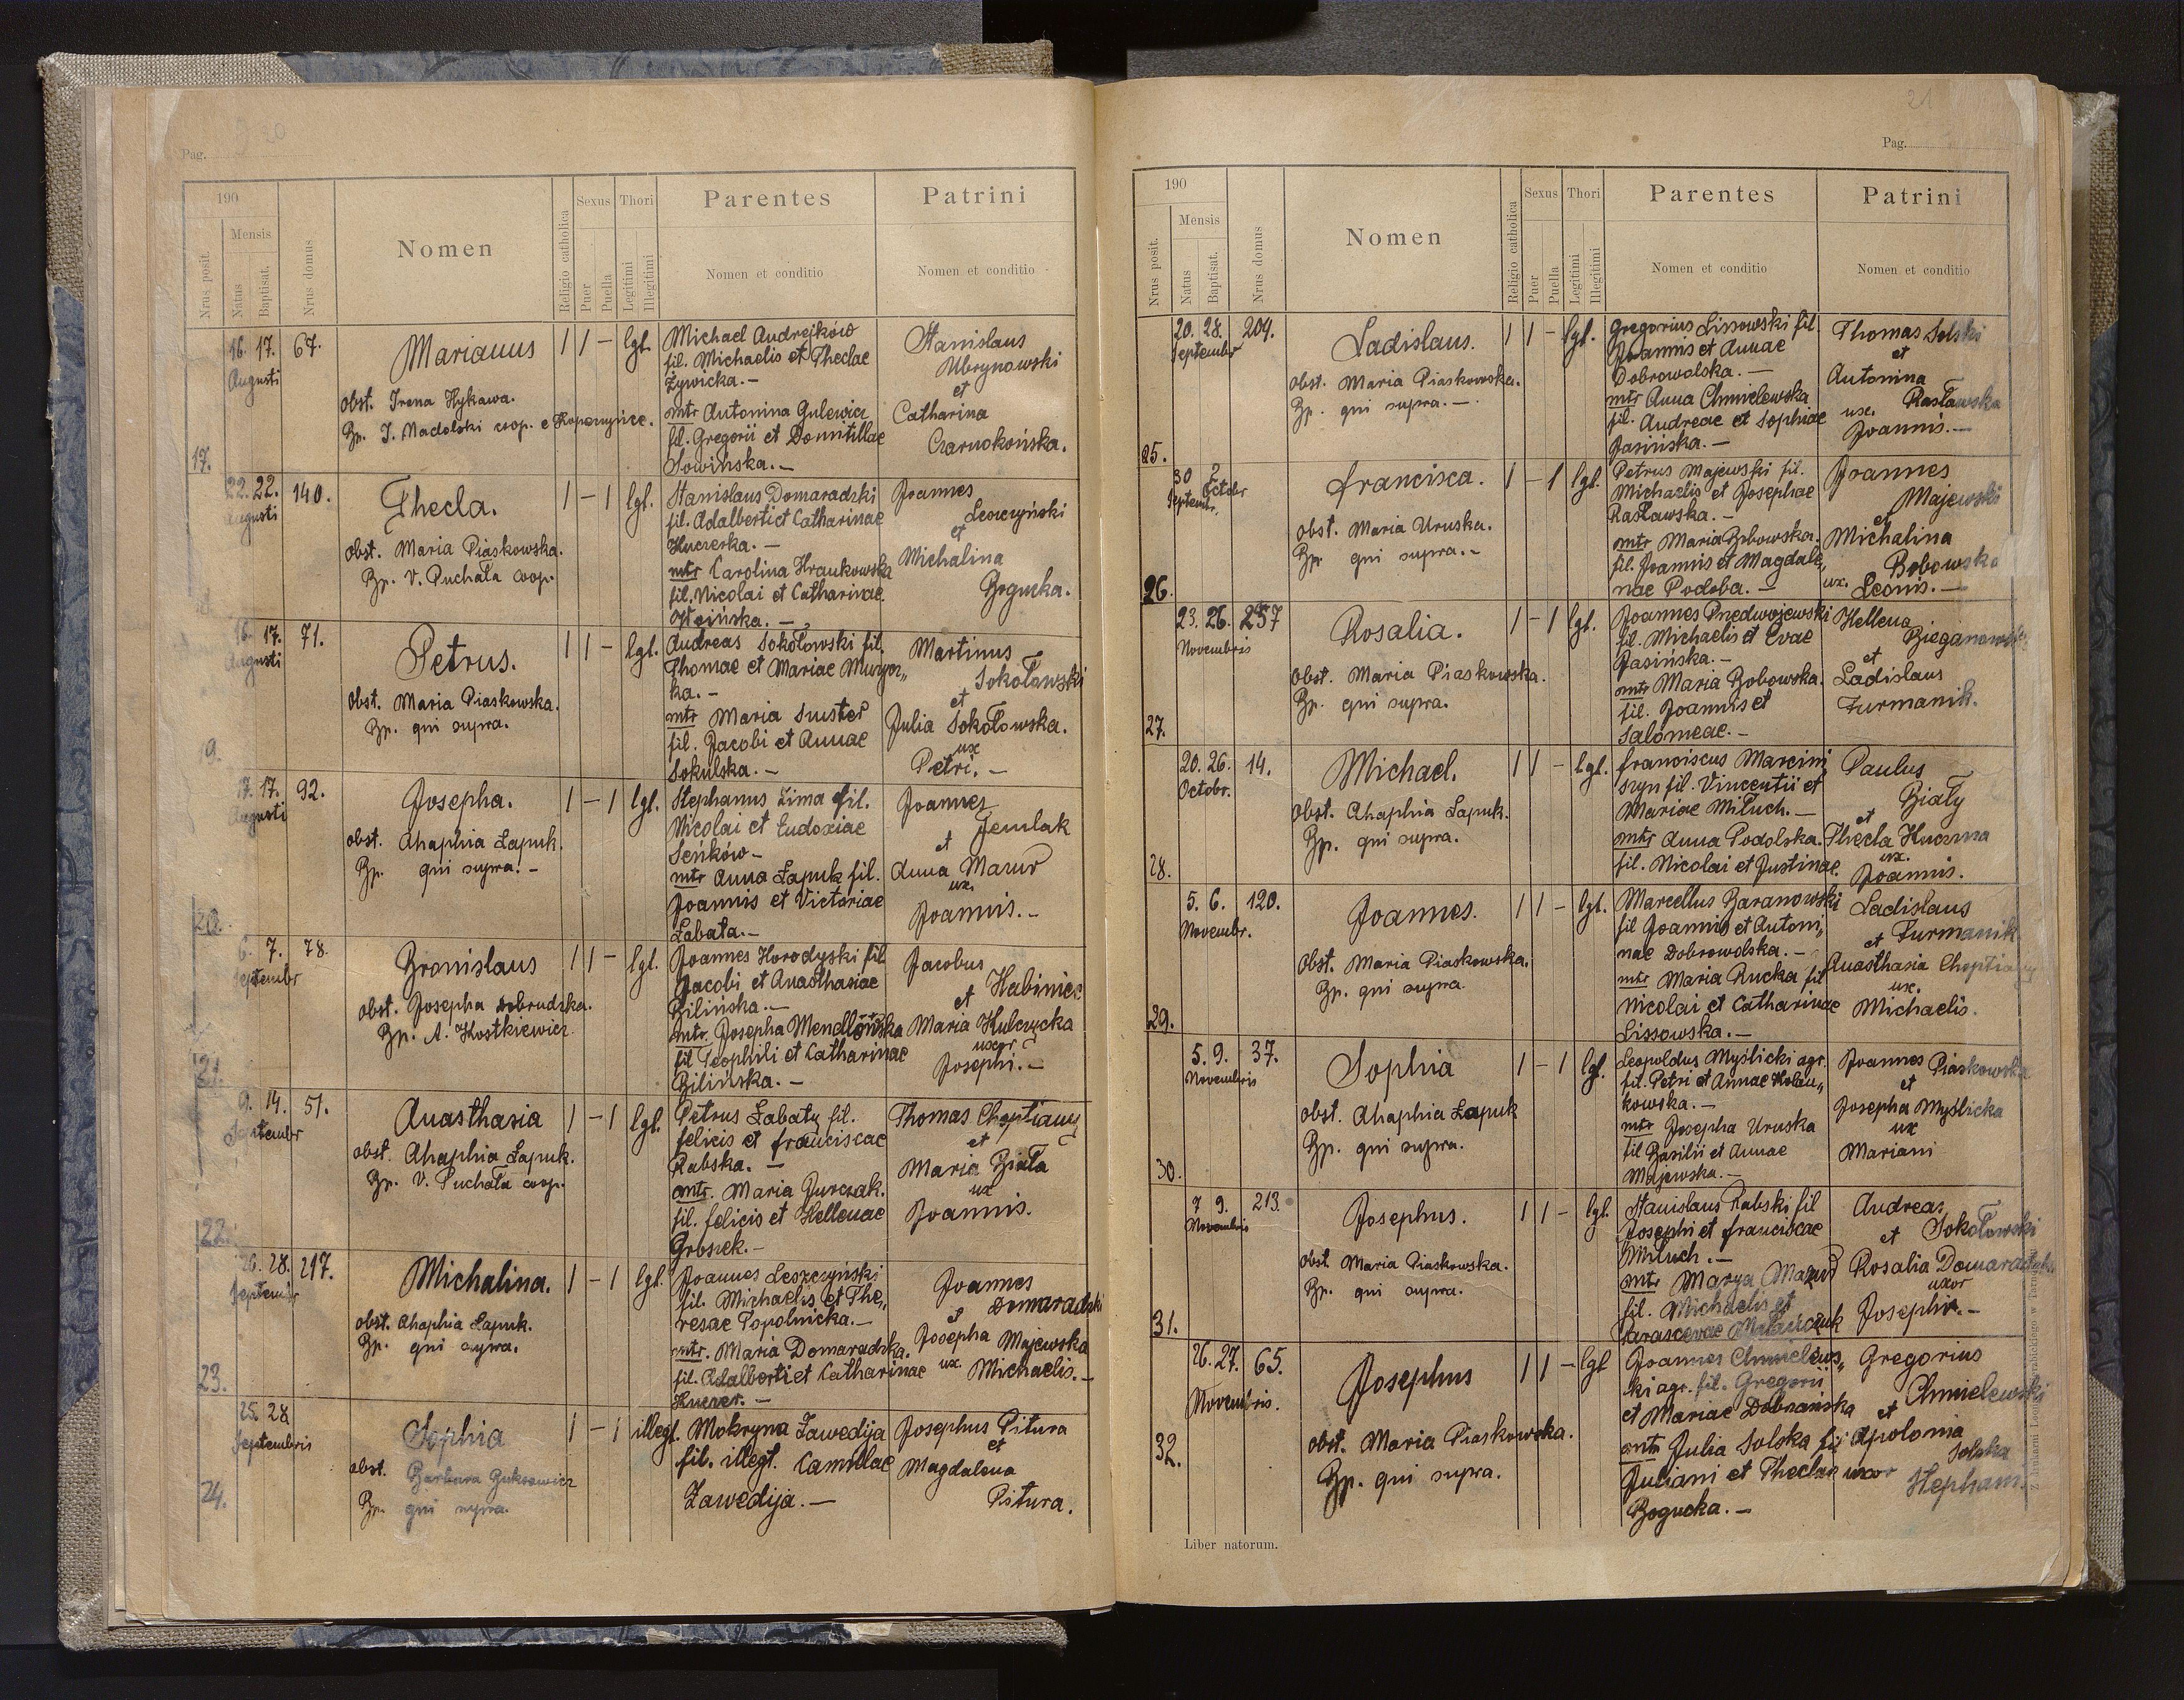 Pag.
190
Nrus posit.
Mensis
Natus
Baptisat.
Nrus domus
Nomen
Religio catholica
Sexus
Puer
Puella
Thori
Legitimi
Illegitimi
Parentes
Nomen et conditio
Patrini
Nomen et conditio
17.
16. 17.
Augusti
67.
Marianus
obst. Irena Hykawa.
Bp. J. Nadolski coop. e Kopeczyńce.
1 1 — lgl.
Michael Andrejków
fil. Michaelis et Theclae
Żywicka. —
mtr Antonina Gulewicz
fil. Gregorii et Domitillae
Sowińska. —
Stanislaus
Ubrynowski
et
Catharina
Czarnokońska.
22. 22.
Augusti
140.
Thecla.
obst. Maria Piaskowska.
Bp. V. Puchała coop.
1 — 1 lgl.
Stanislaus Domaradzki
fil. Adalberti et Catharinae
Kucerka. —
mtr Carolina Hraukowska
fil. Nicolai et Catharinae
Joannes
Leszczyński
et
Michalina
Bogucka.
19.
16. 17.
Augusti
71.
Petrus.
obst. Maria Piaskowska.
Bp. qui supra.
1 1 — lgl.
Andreas Sokołowski fil.
Thomae et Mariae Muzyor„
ka. —
mtr Maria Suster
fil. Jacobi et Annae
Sokulska. —
Martinus
Sokołowski
et
Julia Sokołowska.
ux
Petri. —
20.
17. 17.
Augusti
92.
Josepha.
obst. Ahaphia Łapuk.
Bp. qui supra. —
1 — 1 lgl.
Stephanus Zima fil.
Nicolai et Eudoxiae
Seńków —
mtr Anna Łapuk fil.
Joannis et Victoriae
Łabata. —
Joannes
Jemlak
et
Anna Mazur
ux.
Joannis. —
21.
6. 7.
Septembr
78.
Bronislaus
obst. Josepha Dobrudzka.
Bp. A. Kostkiewicz
1 1 — lgl.
Joannes Horodyski fil
Jacobi et Anasthasiae
Bilińska. —
mtr. Josepha Mendlońska
fil Teophili et Catharinae
Bilińska. —
Jacobus
Habiniec
et
Maria Kulczycka
uxor
Josephi. —
22.
9. 14.
Septembr
51.
Anasthasia
obst. Ahaphia Łapuk.
Bp. V. Puchała coop.
1 — 1 lgl.
Petrus Łabaty fil.
Felicis et Franciscae
Rabska. —
mtr. Maria Jurczak.
fil. Felicis et Hellenae
Grosek. —
Thomas Choptiany
et
Maria Biała
ux
Joannis.
23.
26. 28.
Septembr
217.
Michalina.
obst. Ahaphia Łapuk.
Bp. qui supra.
1 — 1 lgl.
Joannes Leszczyński
fil. Michaelis et The„
resae Topolnicka. —
mtr. Maria Domaradzka.
fil. Adalberti et Catharinae
Kucer. —
Joannes
Domaradzki
et
Josepha Majewska
ux. Michaelis. —
24.
25. 28
Septembris
Sophia
obst. Barbara Buksowicz
Bp. qui supra.
1 — 1 illegl.
Mokryna Zawedija
fil. illegt. Camillae
Zawedija. —
Josephus Pitura
et
Magdalena
Pitura.
21
Pag.
190
Nrus posit.
Mensis
Natus
Baptisat.
Nrus domus
Nomen
Religio catholica
Sexus
Puer
Puella
Thori
Legitimi
Illegitimi
Parentes
Nomen et conditio
Patrini
Nomen et conditio
25.
20. 28.
Septembr
204.
Ladislaus.
obst. Maria Piaskowska.
Bp. qui supra. —
1 1 — lgl.
Gregorius Lissowski fil
Joannis et Annae
Dobrowolska. —
mtr Anna Chmielewska
fil. Andreae et Sophiae
Jasińska. —
Thomas Solski
et
Antonina
Rasławska
ux.
Joannis. —
26.
30 2
Septembr. Octobr
Francisca.
obst. Maria Uruska.
Bp. qui supra. —
1 — 1 lgl.
Petrus Majewski fil.
Michaelis et Josephae
Rasławska. —
mtr Maria Bobowska.
fil. Joannis et Magdale„
nae Podoba. —
Joannes
Majewski
et
Michalina
Bobowska
ux. Leonis. —
27.
23. 26.
Novembris
257
Rosalia.
obst. Maria Piaskowska.
Bp. qui supra.
1 — 1 lgl.
Joannes Przedwojewski
fil. Michaelis et Evae
Jasińska. —
mtr Maria Bobowska.
fil. Joannis et
Salomeae. —
Hellena
et
Ladislaus
Furmanik.
28.
20. 26.
Octobr.
14.
Michael.
obst. Ahaphia Łapuk.
Bp. qui supra.
1 1 — lgl.
Franciscus Marcini„
szyn fil. Vincentii et
Mariae Miłuch. —
mtr Anna Podolska.
fil. Nicolai et Justinae.
Paulus
Biały
et
Thecla Kuczma
ux.
Joannis.
29.
5. 6.
Novembr.
120.
Joannes.
obst. Maria Piaskowska.
Bp. qui supra
1 1 — lgl.
Marcellus Baranowski
fil Joannis et Antoni„
nae Dobrowolska. —
mtr Maria Rucka fil
Nicolai et Catharinae
Lissowska. —
Ladislaus
et Furmanik
Anasthasia Choptiany
ux.
Michaelis.
30.
5. 9.
Novembris
37.
Sophia
obst. Ahaphia Łapuk
Bp. qui supra.
1 — 1 lgl.
Leopoldus Myślicki agr.
fil. Petri et Annae Holeu„
kowska. —
mtr Josepha Uruska
fil Basilii et Annae
Majewska. —
Joannes Piaskowska
et
Josepha Myślicka
ux
Mariani
31.
7 9.
Novembris
213.
Josephus.
obst. Maria Piaskowska.
Bp. qui supra.
1 1 — lgl.
Stanislaus Rabski fil
Josephi et Franciscae
Miłuch. —
mtr Marya Mazur
fil. Michaelis et
Parascevae
Andreas
et Sokołowski
Rosalia Domaradzka
uxor
Josephi. —
32.
26. 27.
Novembris.
65.
Josephus
obst. Maria Piaskowska.
Bp. qui supra.
1 1 — lgl
Joannes Chmielews„
ki agr. fil. Gregorii
et Mariae Dobrańska
mtr Julia Solska fil
Juliani et Theclae
Bogucka. —
Gregorius
Chmielewski
et
Apolonia
Solska
uxor
Stephani.
Liber natorum.